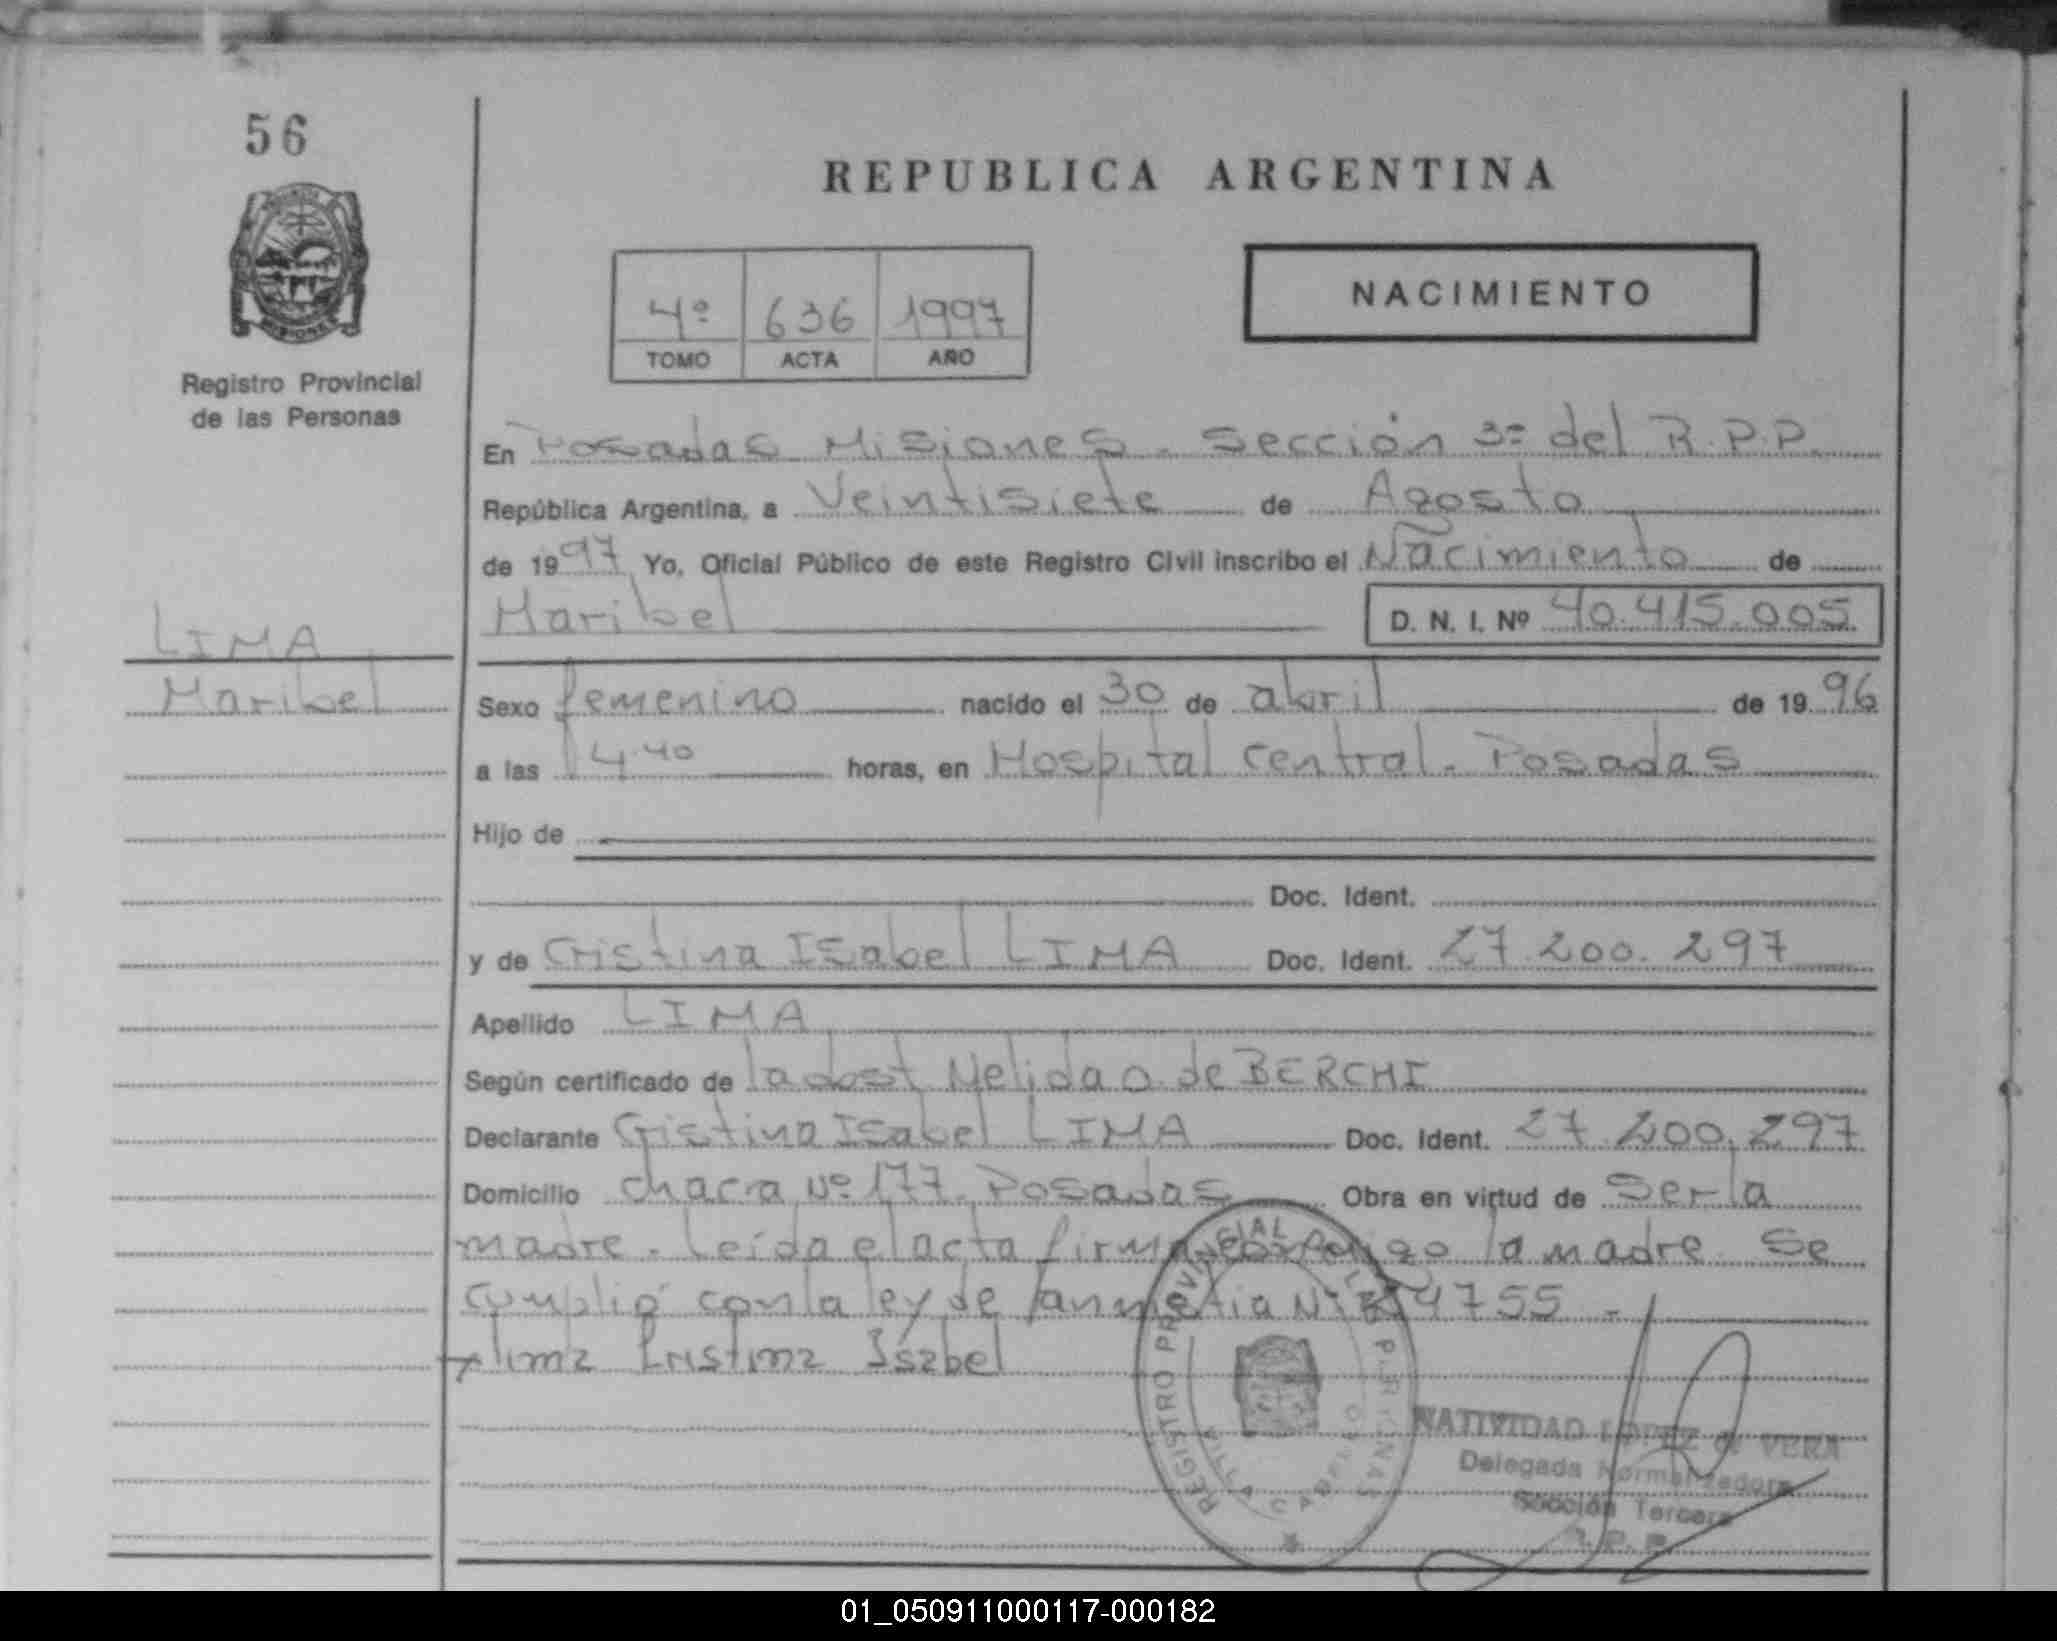 56
REPUBLICA ARGENTINA
NACIMIENTO
4º 636 1997
TOMO ACTA AÑO
Registro Provincial
de las Personas
En Posadas Misiones - Sección 3º del R.P.P.
República Argentina, a Veintisiete de Agosto
de 1997 Yo, Oficial Público de este Registro Civil inscribo el Nacimiento de
Maribel D. N. I. Nº 40.415.005
LIMA
Maribel
Sexo femenino nacido el 30 de abril de 1996
a las 14.40 horas, en Hospital Central - Posadas
Hijo de
Doc. Ident.
y de Cristina Isabel LIMA Doc. Ident. 27.200.297
Apellido LIMA
Según certificado de la obst Nelida O. de BERCHI
Declarante Cristina Isabel LIMA Doc. Ident. 27.200.297
Domicilio chacra Nº 177 - Posadas Obra en virtud de ser la
madre - Leída el acta firma conmigo la madre. Se
cumplió con la ley de Nº 24755 -
Lima Cristina Isabel
REGISTRO PROVINCIAL DE LAS PERSONAS
VILLA CABELLO
NATIVIDAD LOPEZ d VERA
Delegada Normalizadora
Sección Tercera
R. P. P.
01_050911000117-000182